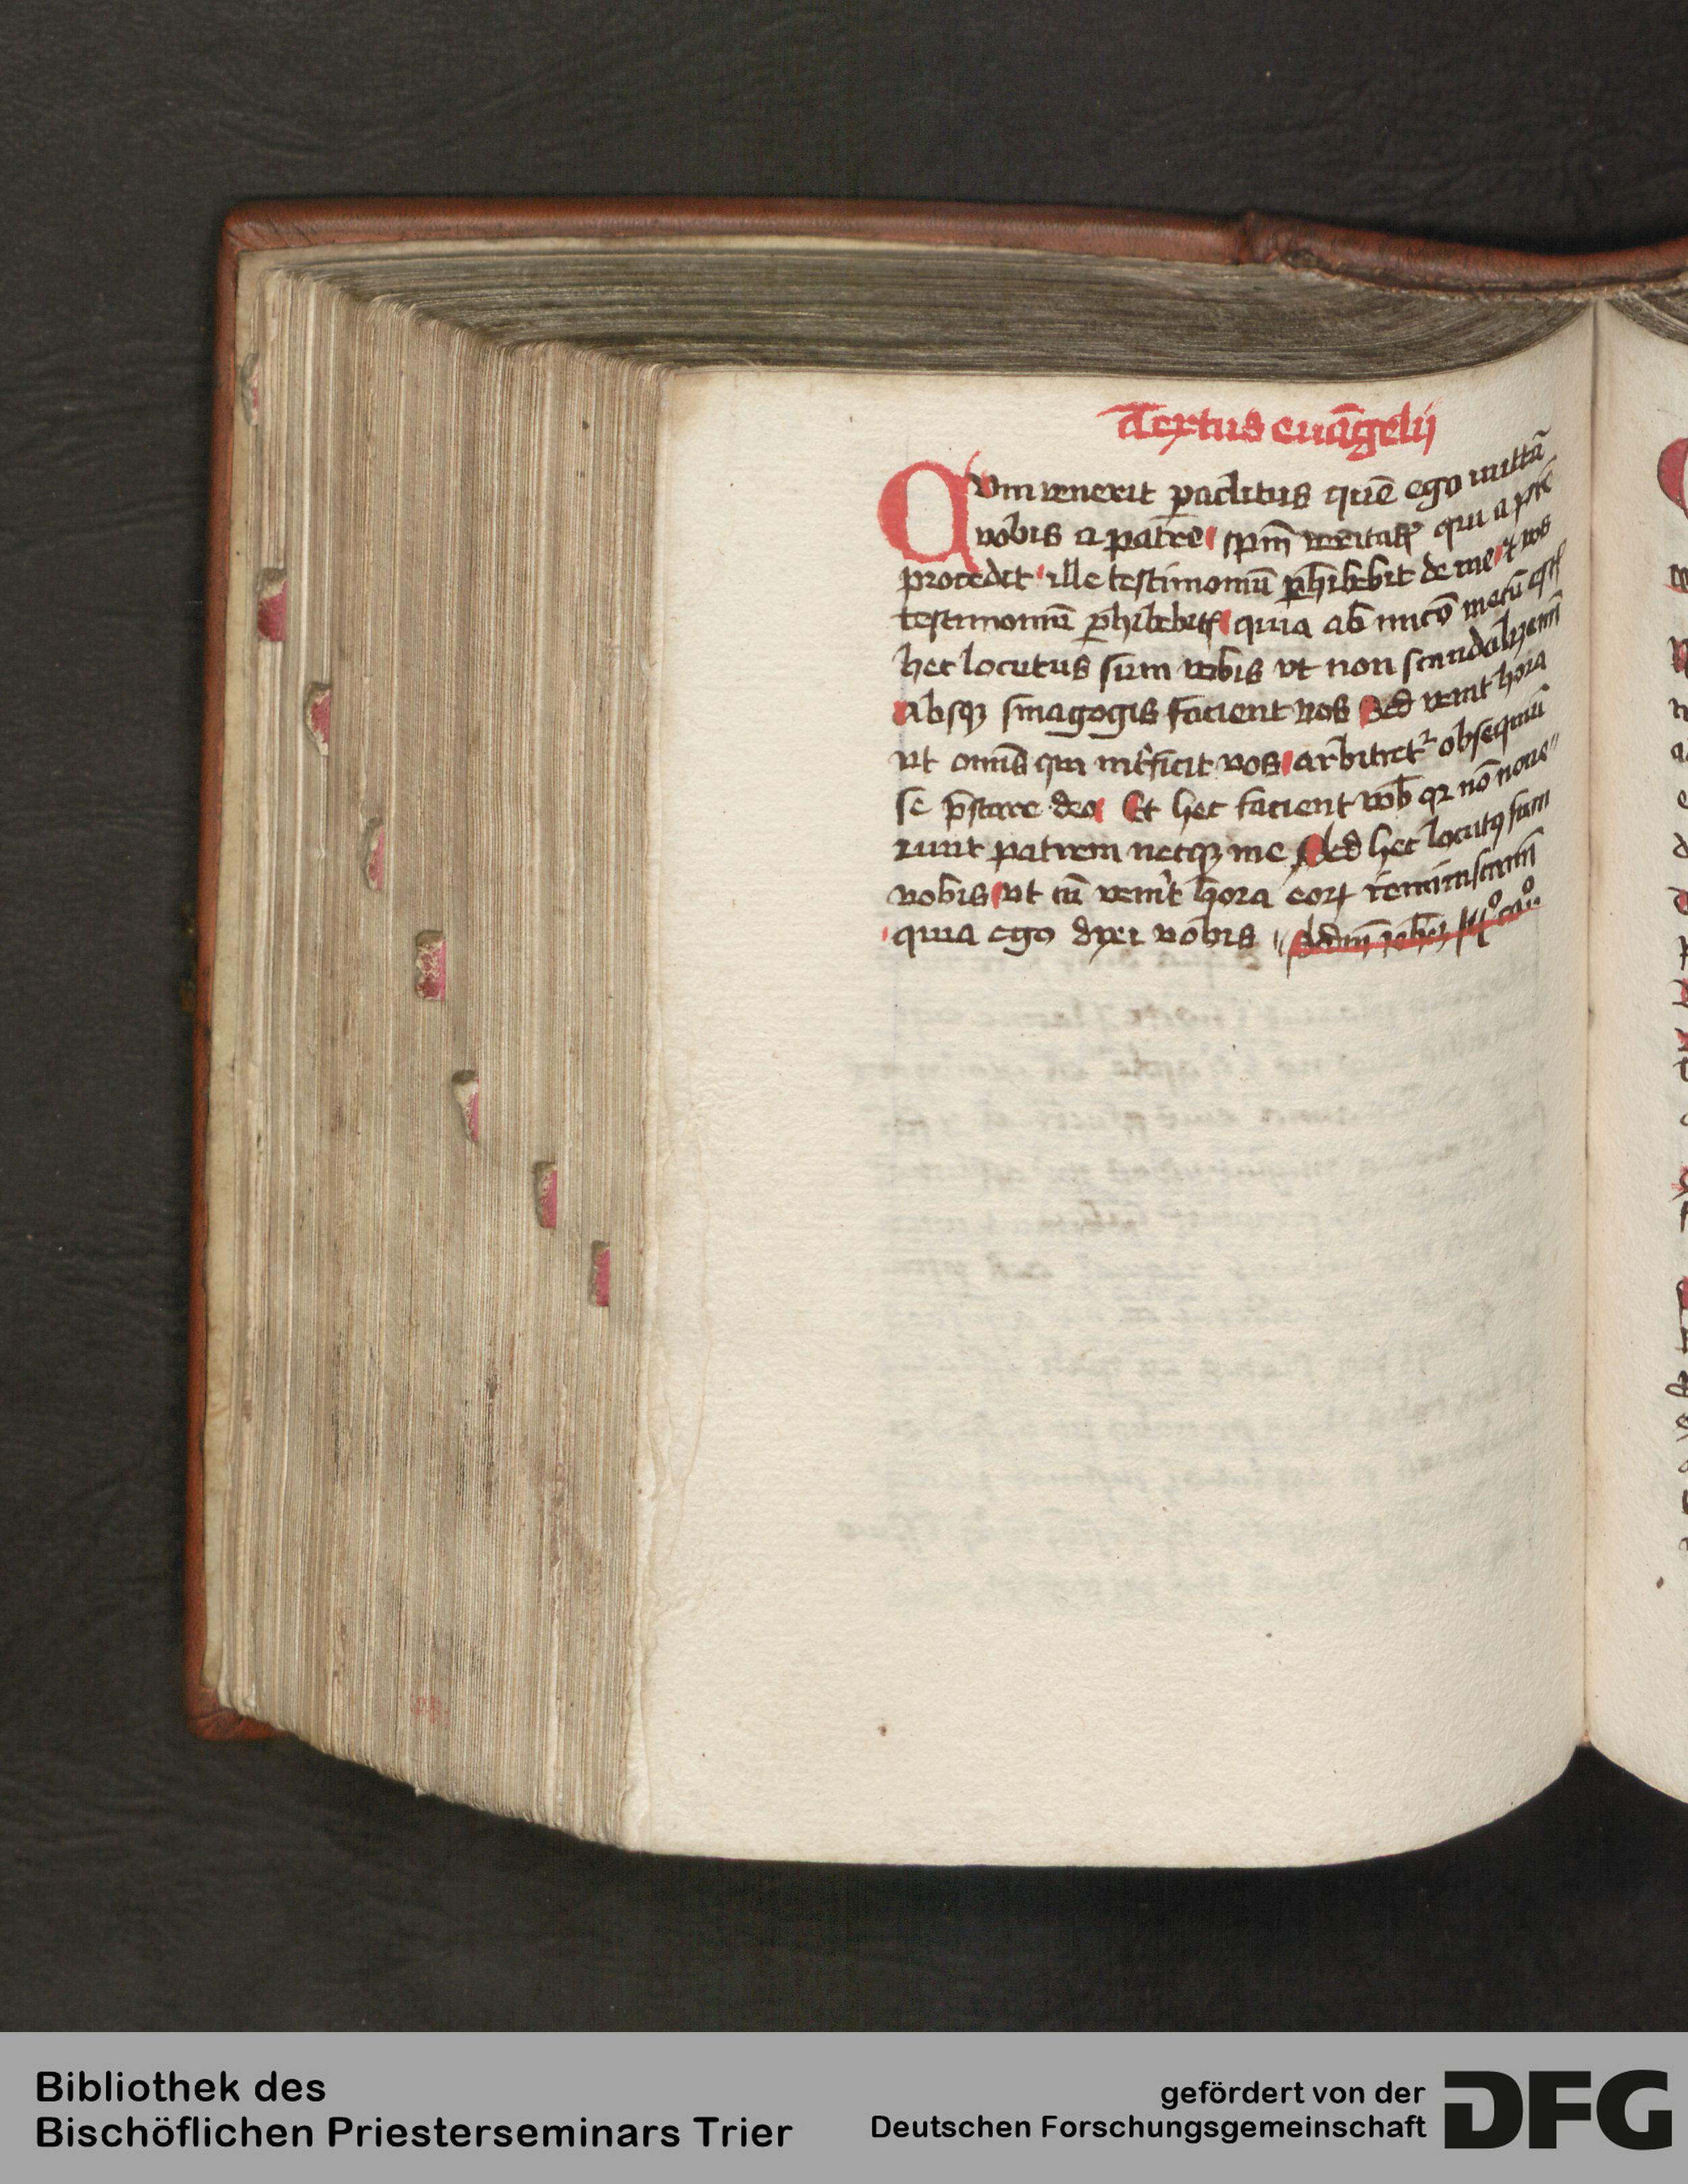 Textus euāgelij
Qum venerit paclitus quē ego mittā
vobis a patre spm̄ veritatꝭ qui a pr̄e
procedit ille testimoniū phibebit de me et vos
testimoniū phibebitꝭ quia ab inicō mecū estꝭ
hec locutus sum vobis vt non scandalizemī
Absqꝫ sinagogis facient vos Sed venit hora
vt omīs qui int̄ficit vos arbitret᷑ obsequiū
se p̄stare deo Et hec facient vob̄ qꝛ nō noue
runt patrem neqꝫ me Sed hec locutꝰ sum
vobis vt cū ven̄it hora eoꝝ reminiscamī
quia ego dixi vobis
Bibliothek des
Bischöflichen Priesterseminars Trier
gefördert von der
Deutschen Forschungsgemeinschaft
DFG